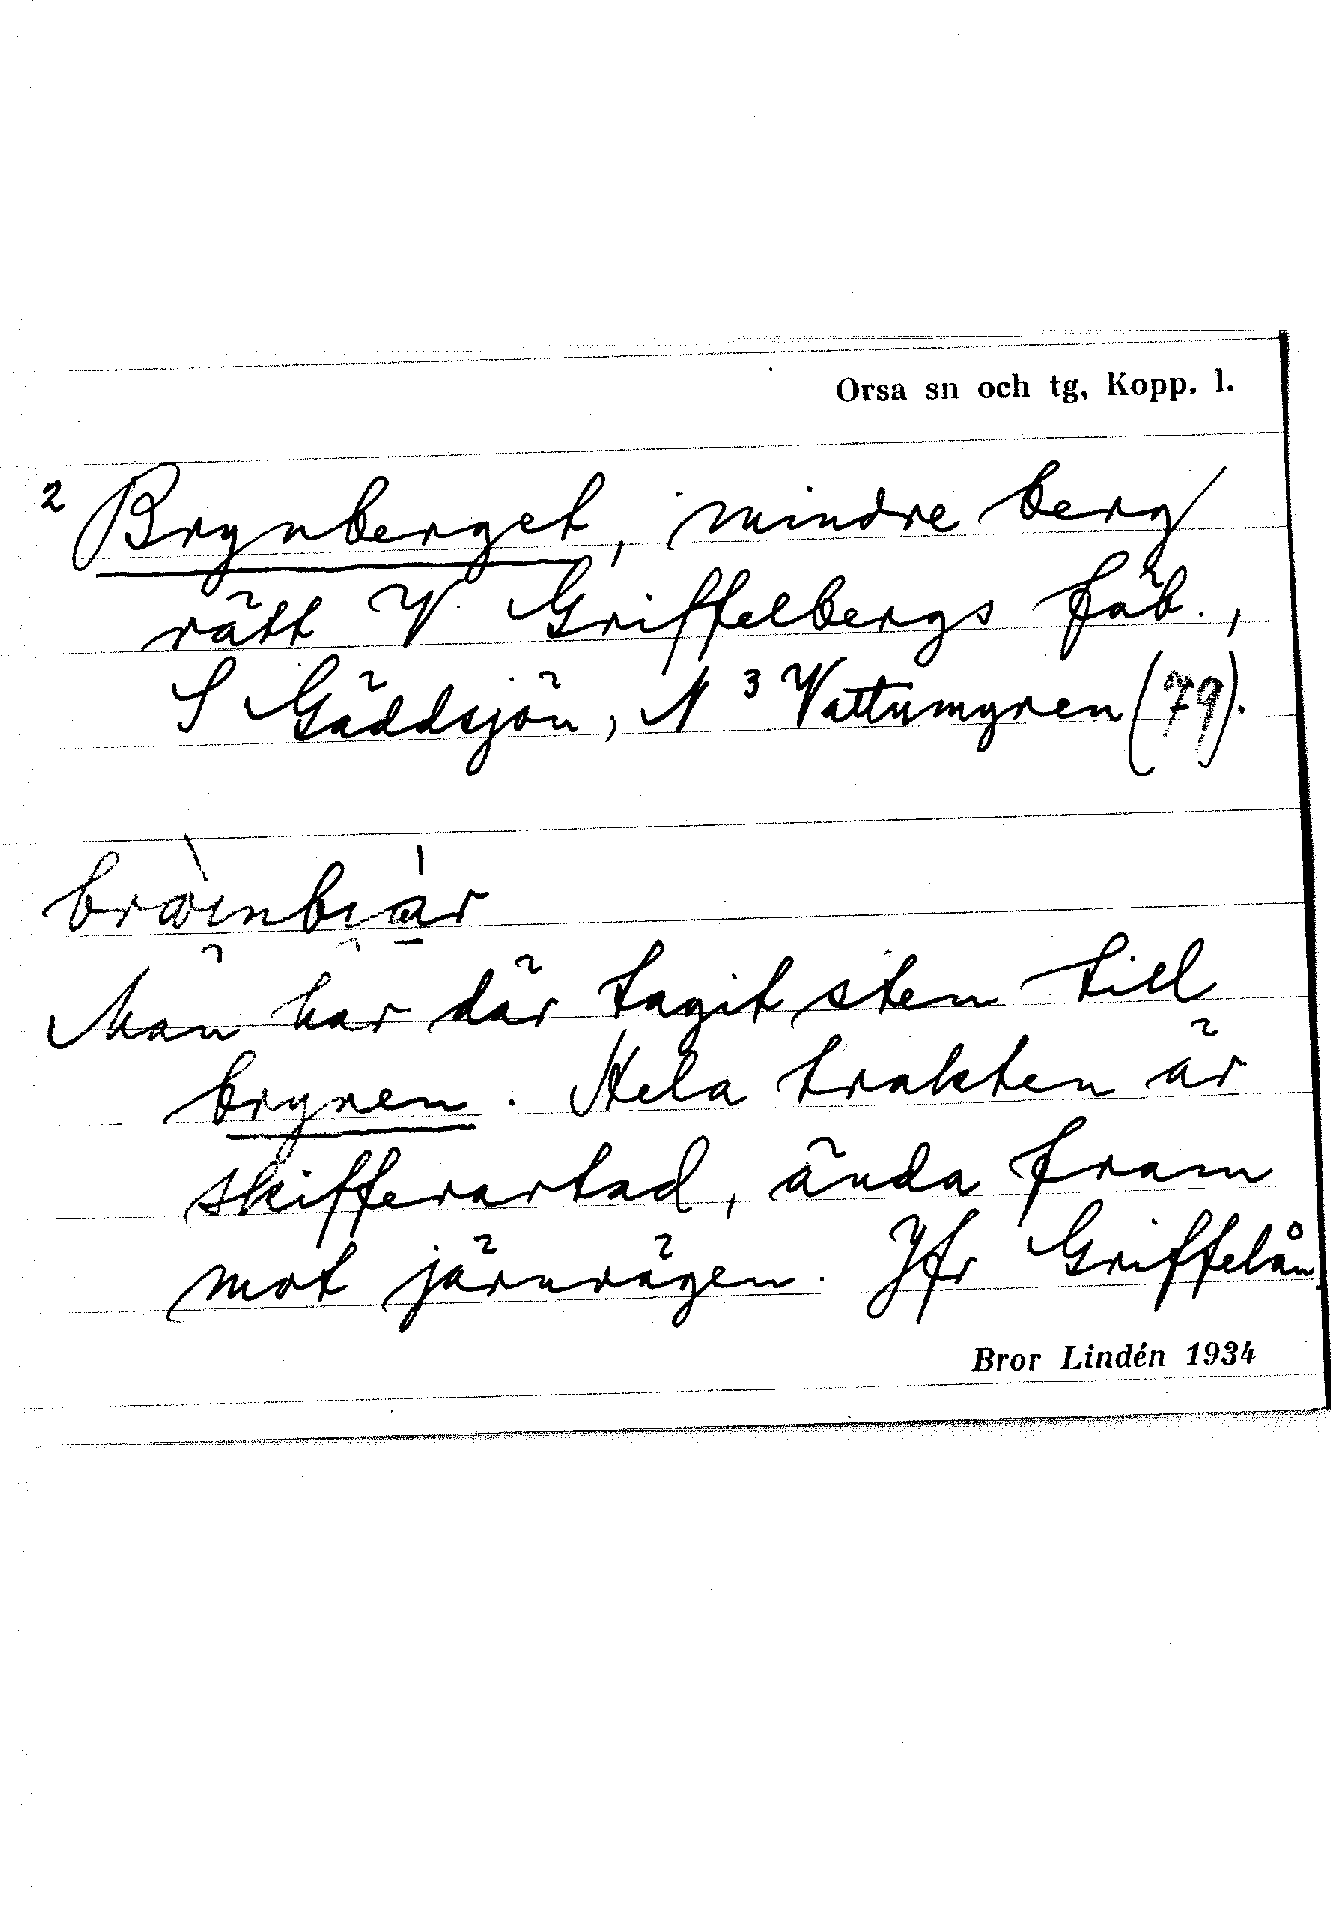 Orsa sn och tg, Kopp. l.
² Brynberget, mindre berg
rätt V. Griffelbergs fäb.,
S Gäddsjön, N ³ Vattumyren (79).
Man har där tagit sten till
brynen. Hela trakten är
skifferartad, ända fram
mot järnvägen. Jfr Griffelån.
Bror Lindén 1934